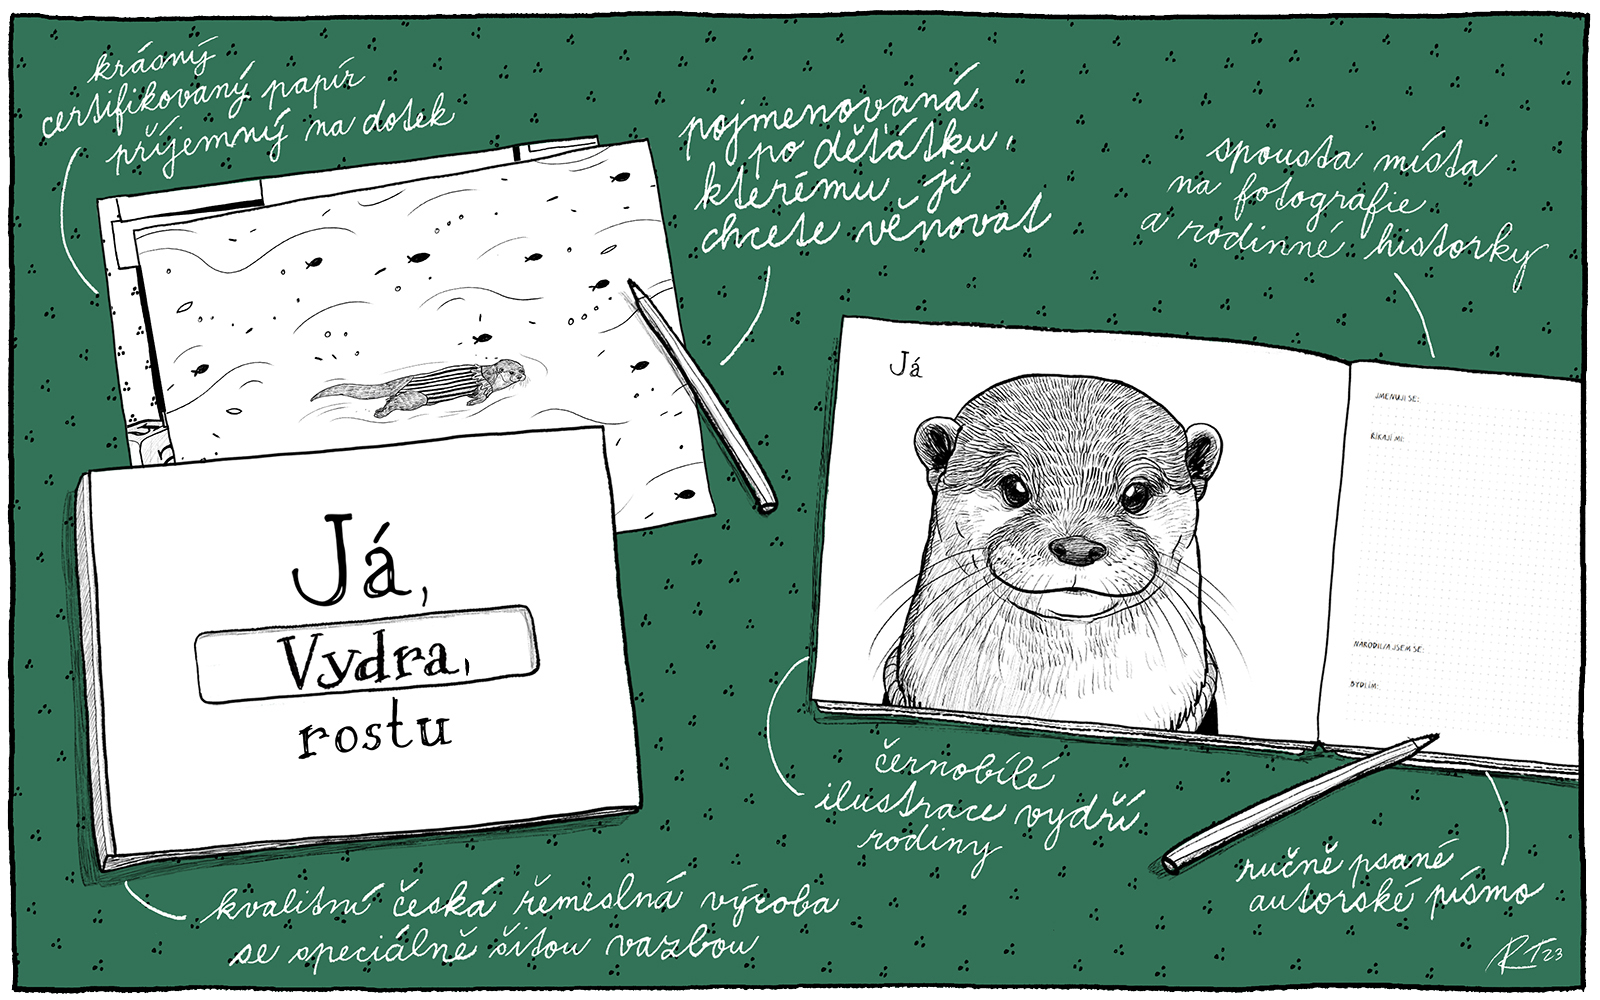 krásný
certifikovaný papír
příjemný na dotek
pojmenovaná
po děťátku,
kterému ji
chcete věnovat
spousta místa
na fotografie
a rodinné historky
Já,
Vydra,
rostu
Já
JMENUJI SE:
ŘÍKAJÍ MI:
NARODIL/A JSEM SE:
BYDLÍM:
černobílé
ilustrace vydří
rodiny
ručně psané
autorské písmo
kvalitní česká řemeslná výroba
se speciálně šitou vazbou
RT23